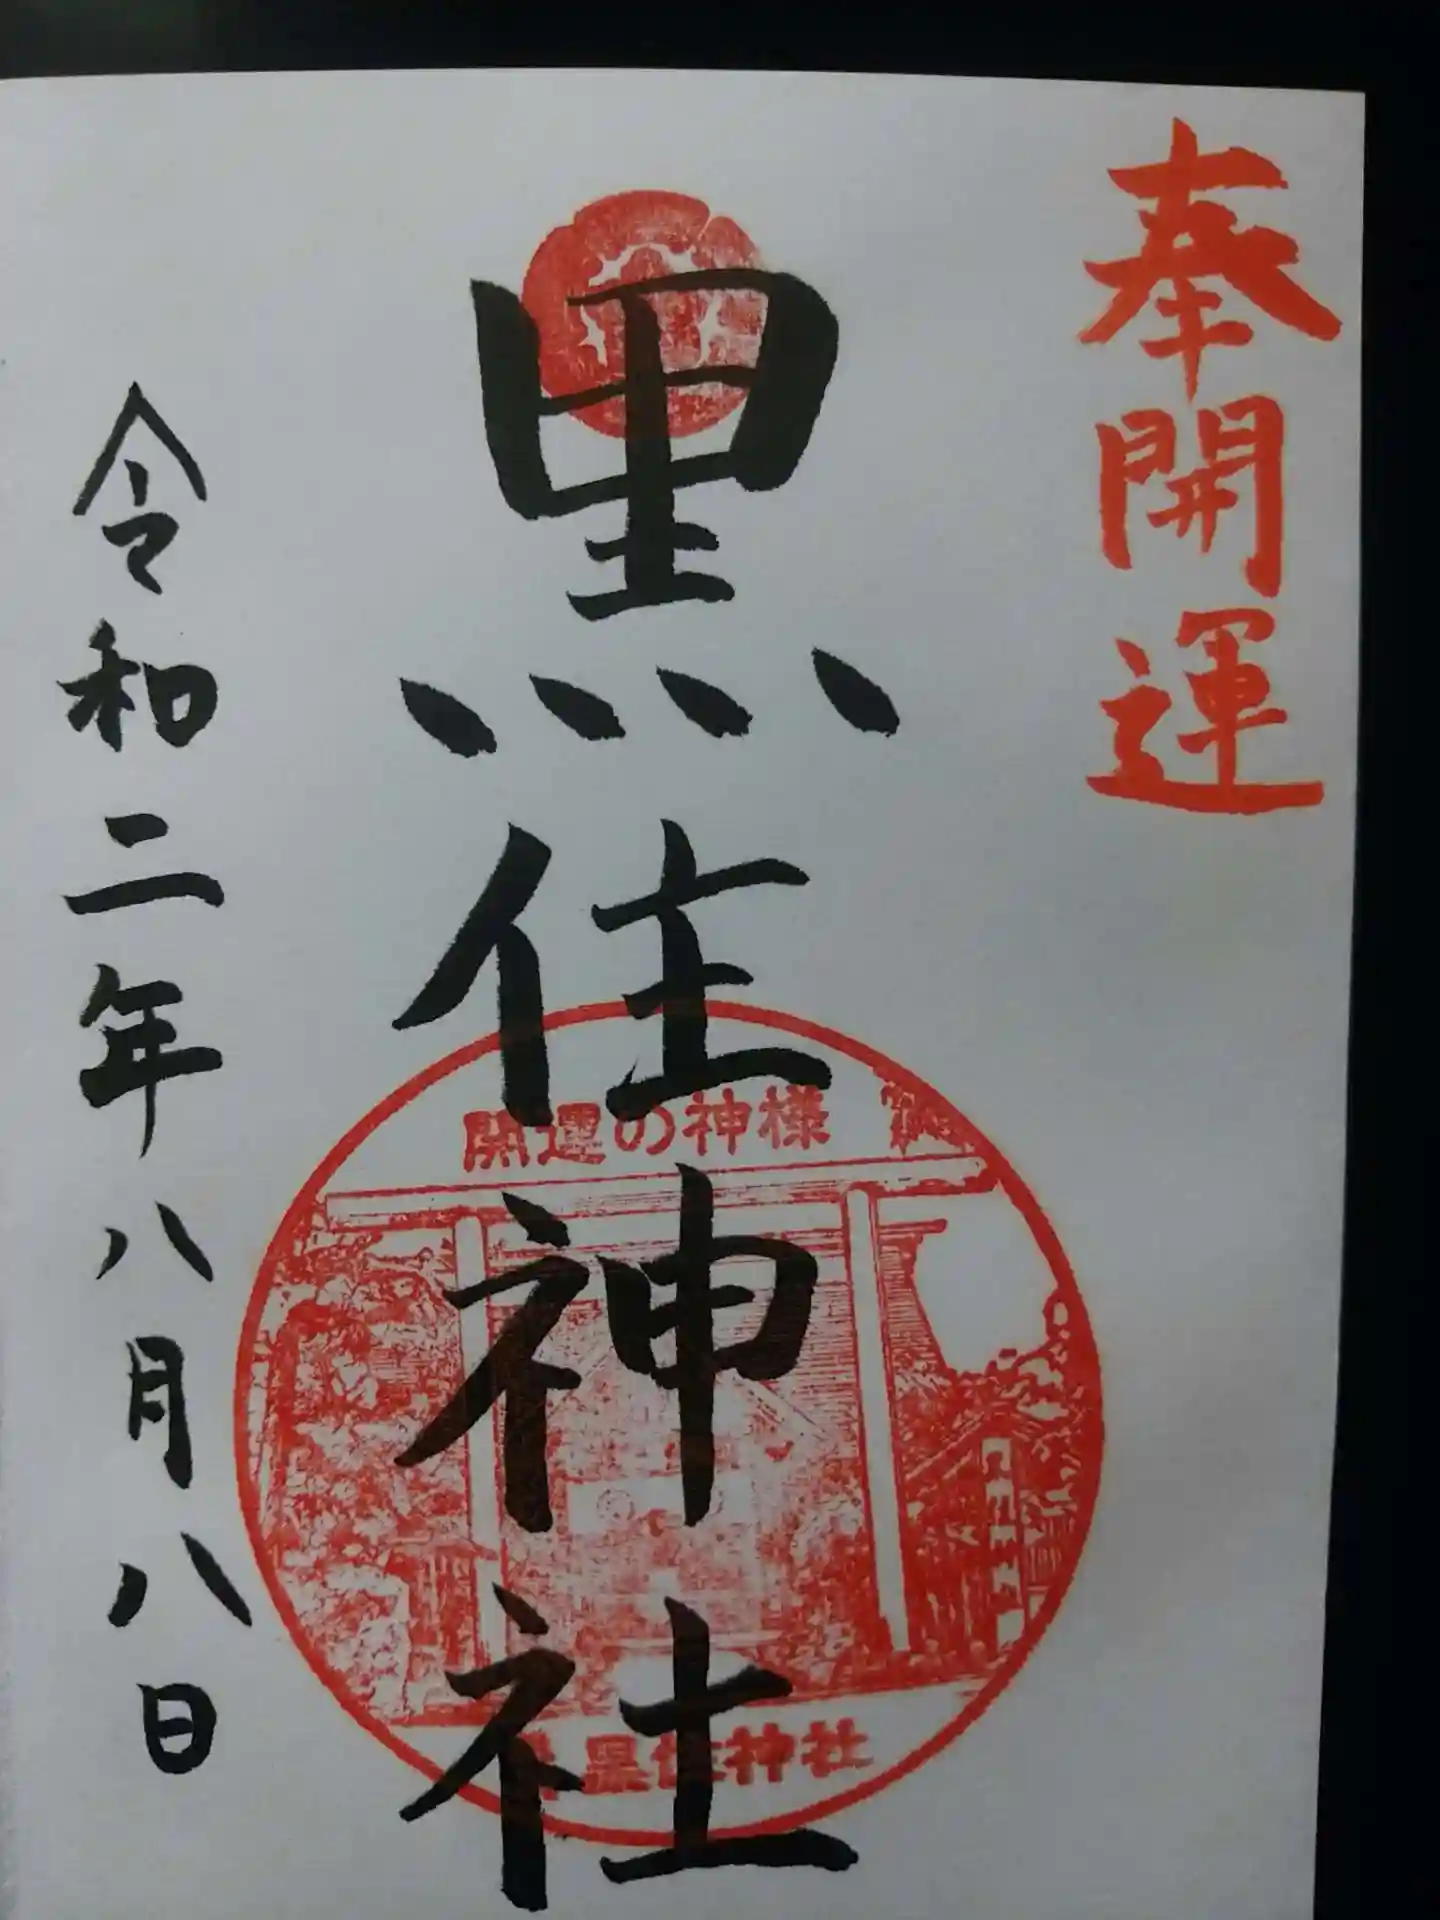 奉開運
黒住神社
開運の神様
黒住神社
令和二年八月八日